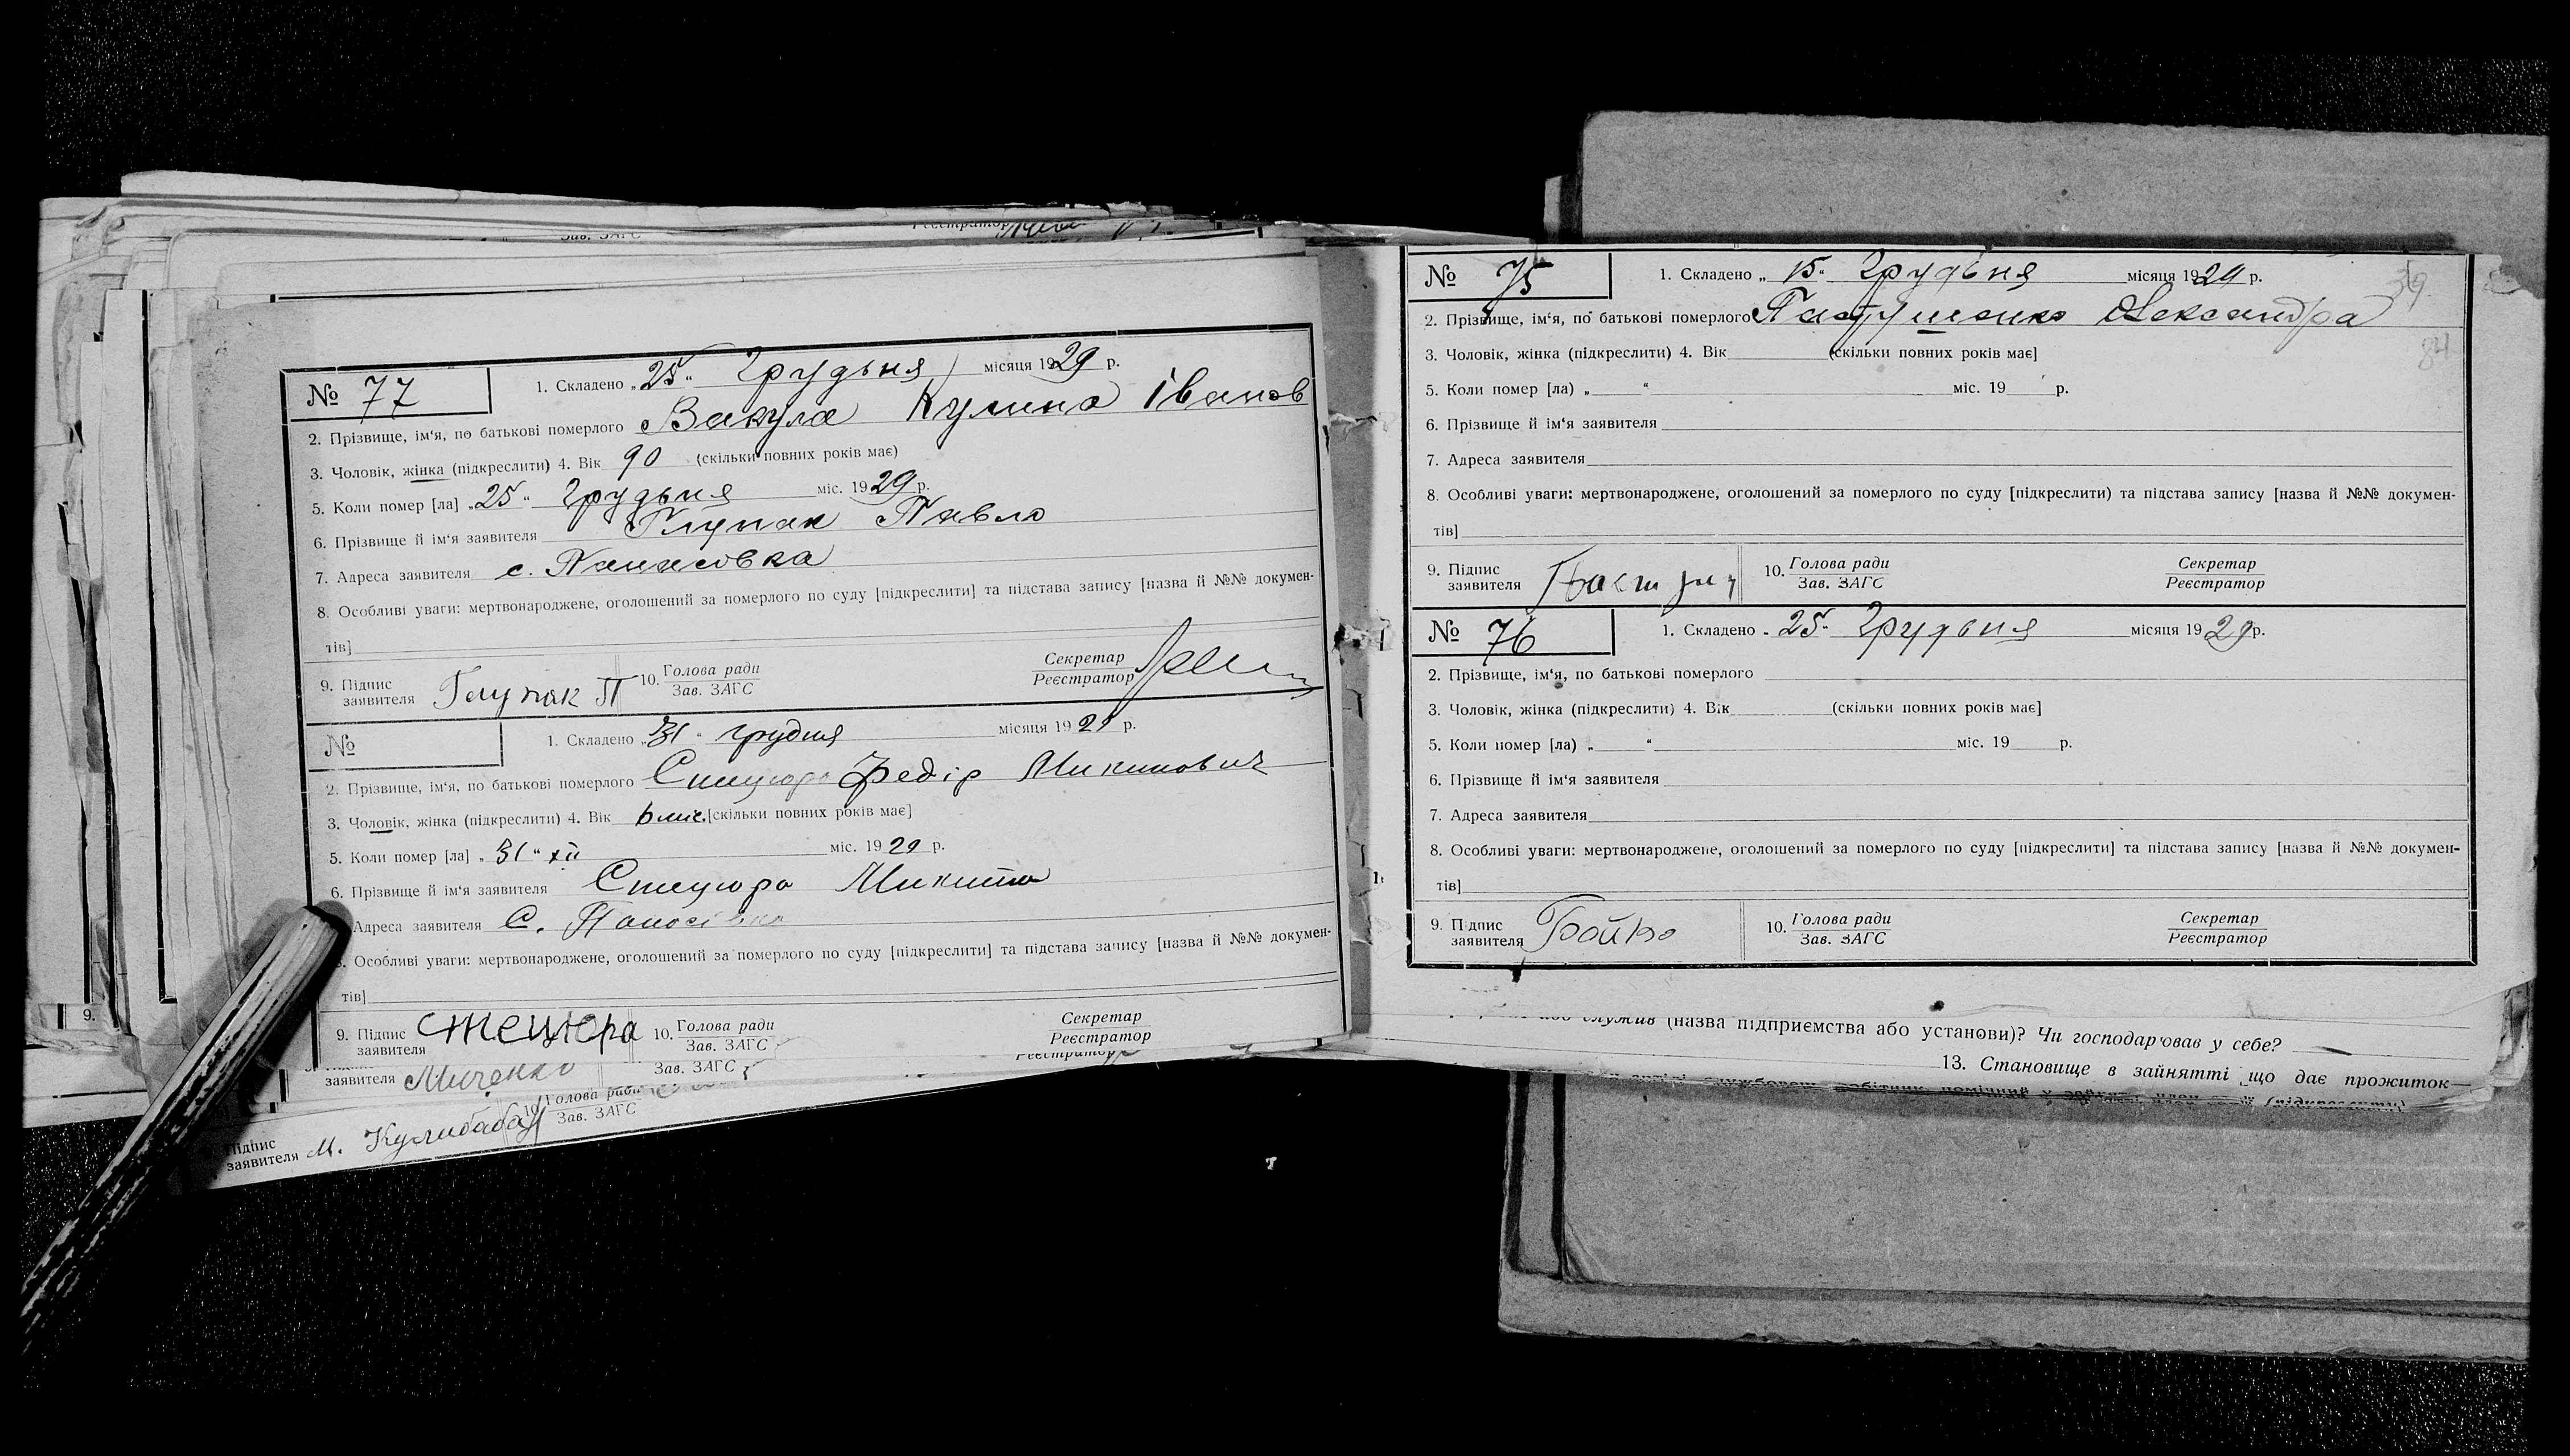 Зав. ЗАГС
Реєстратор
№ 77
1. Складено „25“ Грудьня місяця 1929 р.
2. Прізвище, ім‘я, по батькові померлого Вакула Кулина Іванов
3. Чоловік, жінка (підкреслити) 4. Вік 90 (скільки повних років має)
5. Коли помер [ла] „25“ Грудьня міс. 1929 р.
6. Прізвище й ім‘я заявителя Глупак Павло
7. Адреса заявителя с. Панасовка
8. Особливі уваги: мертвонароджене, оголошений за померлого по суду [підкреслити] та підстава запису [назва й №№ докумен-
тів]
9. Підпис заявителя Глупак П 10. Голова ради Зав. ЗАГС Секретар Реєстратор
№
1. Складено „31“ грудня місяця 1929 р.
2. Прізвище, ім‘я, по батькові померлого Стецюра Федір Микитович
3. Чоловік, жінка (підкреслити) 4. Вік 6 міс. [скільки повних років має]
5. Коли помер [ла] „31“ XII міс. 1929 р.
6. Прізвище й ім‘я заявителя Стецюра Микита
Адреса заявителя С. Панасівка
Особливі уваги: мертвонароджене, оголошений за померлого по суду [підкреслити] та підстава запису [назва й №№ докумен-
тів]
9. Підпис заявителя Стецюра 10. Голова ради Зав. ЗАГС Секретар Реєстратор
9.
заявителя Миченко Зав. ЗАГС Реєстратор
Підпис заявителя М. Кулибаба 10. Голова ради Зав. ЗАГС
№ 75
1. Складено „15“ Грудьня місяця 1929 р.
2. Прізвище, ім‘я, по батькові померлого Олександра
3. Чоловік, жінка (підкреслити) 4. Вік (скільки повних років має]
84
5. Коли помер [ла) „ “ міс. 19 р.
6. Прізвище й ім‘я заявителя
7. Адреса заявителя
8. Особливі уваги: мертвонароджене, оголошений за померлого по суду [підкреслити) та підстава запису [назва й №№ докумен-
тів]
9. Підпис заявителя 10. Голова ради Зав. ЗАГС Секретар Реєстратор
№ 76
1. Складено „25“ Грудьня місяця 1929 р.
2. Прізвище, ім‘я, по батькові померлого
3. Чоловік, жінка (підкреслити) 4. Вік (скільки повних років має]
5. Коли помер [ла) „ “ міс. 19 р.
6. Прізвище й ім‘я заявителя
7. Адреса заявителя
8. Особливі уваги: мертвонароджене, оголошений за померлого по суду [підкреслити] та підстава запису [назва й №№ докумен-
тів]
9. Підпис заявителя Бойко 10. Голова ради Зав. ЗАГС Секретар Реєстратор
або служив (назва підприємства або установи)? Чи господарював у себе?
13. Становище в зайнятті що дає прожиток—